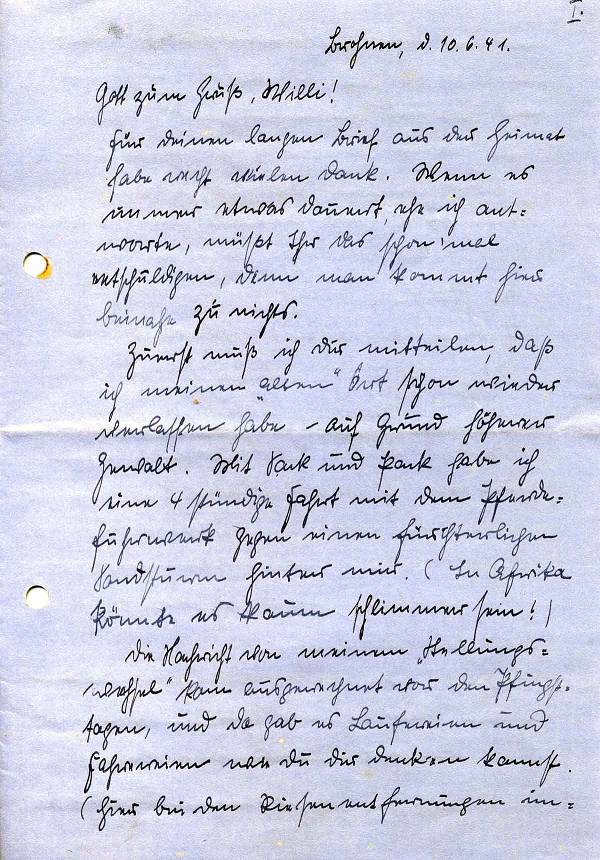 I.
Brohnen, d. 10.6.41.
Gott zum Gruß, Willi!
Für deinen langen Brief aus der Heimat
habe recht vielen Dank. Wenn es
immer etwas dauert, ehe ich ant=
worte, müßt Ihr das schon 'mal
entschuldigen, denn man kommt hier
beinahe zu nichts.
Zuerst muß ich dir mitteilen, daß
ich meinen "alten" Ort schon wieder
verlassen habe - auf Grund höherer
Gewalt. Mit Sack und Pack habe ich
eine 4 stündige Fahrt mit dem Pferde=
fuhrwerk gegen einen fürchterlichen
Sandsturm hinter mir. (In Afrika
könnte es kaum schlimmer sein!)
Die Nachricht von meinem "Stellungs=
wechsel" kam ausgerechnet vor den Pfingst=
tagen, und da gab es Laufereien und
Fahrereien wie du dir denken kannst.
(Hier bei den Riesenentfernungen im=